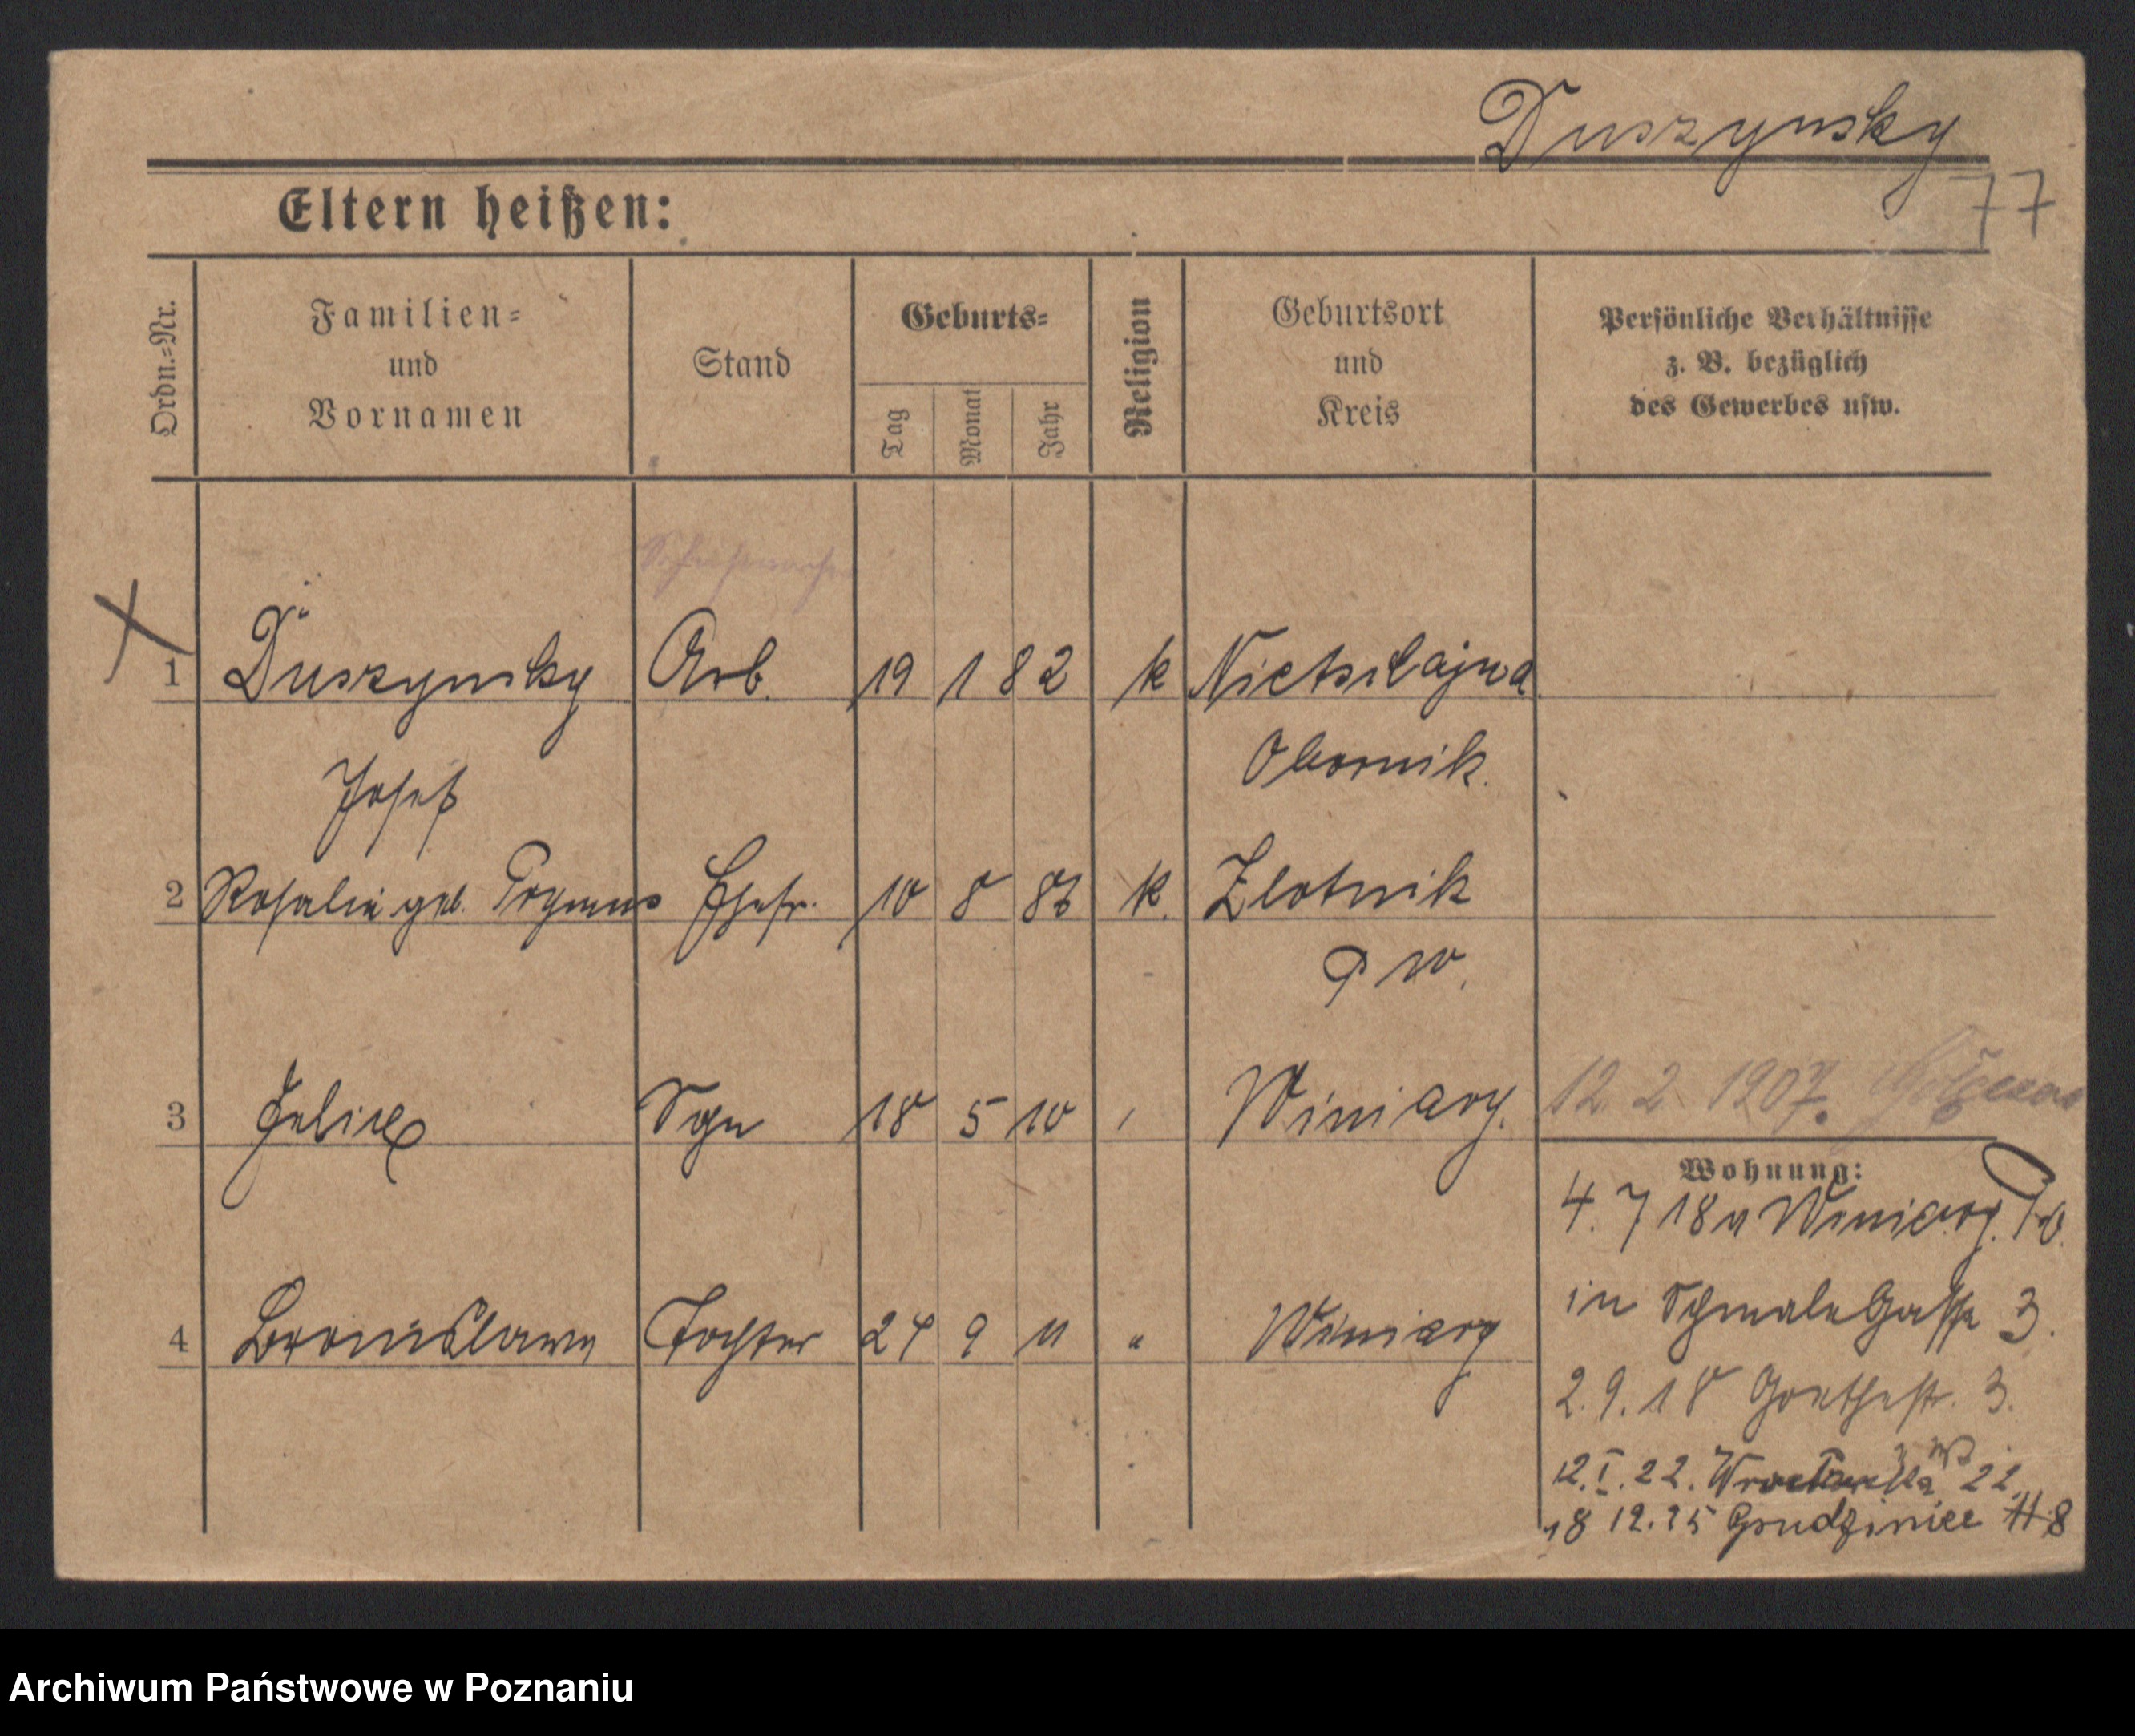 Duszynsky
77
Eltern heißen:
Ordn.=Nr.
Familien=
und
Vornamen
Stand
Geburts=
Tag
Monat
Jahr
Religion
Geburtsort
und
Kreis
Persönliche Verhältnisse
z. B. bezüglich
des Gewerbes usw.
1 Duszynsky Arb. 19 1 82 k
Obornik.
Josef
2 Rosalie geb. Ehefr. 10 8 k. Zlotnik
P W.
3 Felix Sohn 18 5 10 Winiary.
12. 2. 1907.
Wohnung:
4. 7 18 Winiary.
in Schmale Gasse 3.
4 Bronislawa Tochter 24 9 11 " Winiary
2. 9. 18 Goethestr. 3.
12. I. 22. Wrocławska 22.
18 12. 25 Grudzieniec 8
Archiwum Państwowe w Poznaniu